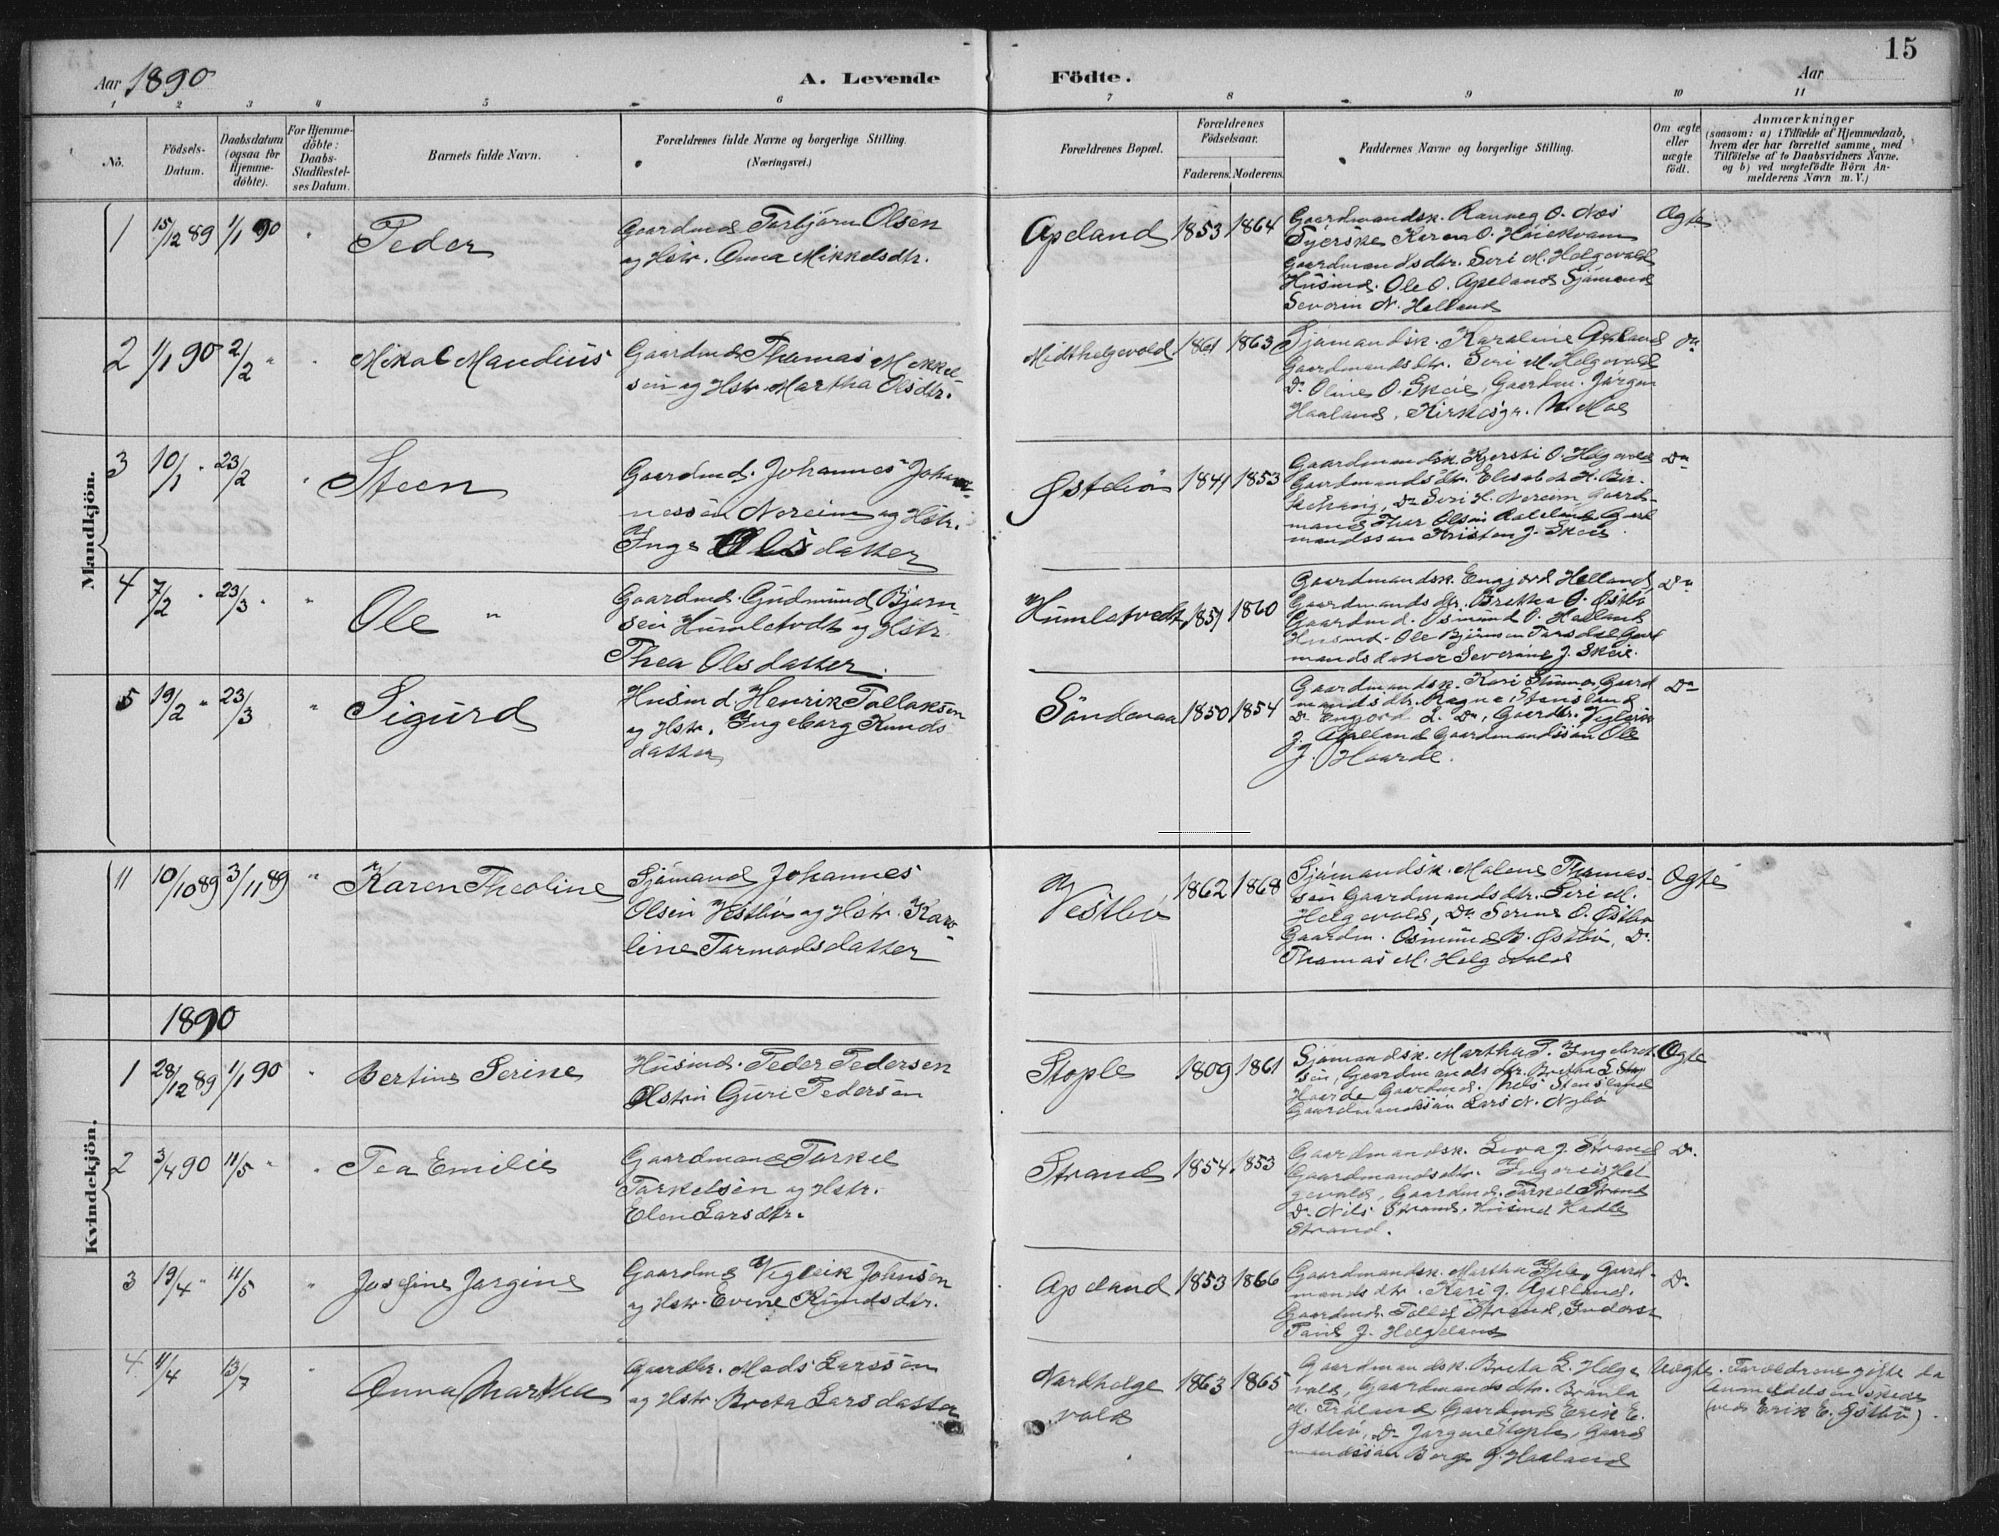 15
Aar 1890
A. Levende
Födte.
Aar
1 2 3 4 5 6 7 8 9 10 11
No.
Födsels-
Datum.
Daabsdatum
(ogsaa for
Hjemme-
döbte).
For Hjemme-
döbte:
Daabs-
Stadfæstel-
ses Datum.
Barnets fulde Navn.
Forældrenes fulde Navne og borgerlige Stilling.
(Næringsvei.)
Forældrenes Bopæl.
Forældrenes
Födselsaar.
Faderens. Moderens.
Faddernes Navne og borgerlige Stilling.
Om ægte
eller
uægte
födt.
Anmærkninger
(saasom: a) i Tilfælde af Hjemmedaab,
hvem der har forrettet samme, med
Tilföielse af to Daabsvidners Navne.
og b) ved uægtefödte Börn An-
melderens Navn m. V.)
Mandkjön.
1 15/12 89 1/1 90 " Peder
Gaardmd Torbjörn Olsen
og Hstr. Anna Mikkelsdtr.
Apeland 1853 1864
Gaardmandsk. Ranveg O. Næs
Syerske Karen O. Höiekvam
Gaardmandsdtr. Seri M. Helgevold
Husmd. Ole O. Apeland Sjömand
Severin N. Helland
Ægte
2 1/1 90 2/2 " " Mikal Mandius
Gaardmd Thomas Mikkel-
sen og Hstr. Martha Olsdtr.
Midthelgevold 1861 1863
Sjömandsk. Karoline Apeland
Gaardmandsdtr. Seri M. Helgevold
Do Oline O. Skeie, Gaardm. Jörgen
Haaland, Kirkesgr. N. Moe
Do
3 10/1 " 23/2 " Steen
Gaardmd. Johannes Johan-
nessen Noreim og Hstr.
Inge Olsdatter
Östebö 1841 1853
Gaardmandsk. Kjersti O. Helgevold
Gaardmandsdtr. Elisabet H. Bir-
Do Seri H. Noreim Gaard-
mand Thor Olsen
mandssön Kristen J. Skeie
Do
4 7/2 " 23/3 " " Ole "
Gaardmd. Gudmund Björn-
sen Humletvedt og Hstr.
Thea Olsdatter.
Humletvedt 1851 1860
Gaardmandsk. Engjord Helland
Gaardmandsdtr. Bretha O. Östbö
Gaardmd. Osmund O. Helland
Husmd. Ole Björnsen
mandsdatter Severine J. Skeie.
Do
5 19/2 " 23/3 " Sigurd
Husmd. Henrik Tollaksen
og Hstr. Ingeborg Knuds
datter
Söndenaa 1850 1854
Gaardmandsk. Kari Gaard
mandsdtr. Ragne Stensland
Do Engjord L. Do, Gaardbr. Vigleik
J. Apeland Gaardmandssön Ole
J. Haarde.
Do
11 10/10 89 3/11 89 " Karen Theoline
Sjömand Johannes
Olsen Vestbö og Hstr. Karo-
line Tormodsdatter
Vestbö 1862 1868
Sjömandsk. Malene Thomas-
sen Gaardmandsdtr. Seri M.
Helgevold, Do Serine O. Östbö
Gaardm. Osmund B. Östbö, Do
Thomas M. Helgevold
Ægte
1890
Kvindekjön.
1 28/12 89 1/1 90 " Bertine Serine
Husmd. Peder Pedersen
Hstru Guri Pedersen
Stople 1809 1861
Sjömandsk. Martha P. Ingebret-
sen, Gaardmandsdtr. Bretha L.
Haarde Gaardmd. Nels Stensland
Gaardmandssön Lars N. Nybö
Ægte
2 3/4 90 11/5 " " Tea Emilie
Gaardmand Torkel
Torkelsen og Hstr.
Elen Larsdtr.
Strand 1854 1853
Gaardmandsk. Liva J. Strand
Gaardmandsdtr. Hel
gevold, Gaardmd. Torkel Strand
Do Nils Strand, Husmd
Strand.
Do
3 19/4 " 11/5 " Josefine Jörgine
Gaardmd Vigleik Johnsen
og Hstr. Evine Knudsdtr.
Apeland 1853 1866
Gaardmandsk. Martha Gaard-
mandsdtr. Kari J. Apeland.
Gaardmd. Strand,
J. Helgeland
Do
4 11/4 13/7 " Anna Martha
Gaardbr. Mads Larssen
og Hstr Breta Larsdatter
Nordhelge
vold
1863 1865
Gaardmandsk. Breta L. Helge
vold, Gaardmandsdtr. Bränla
M. Gaardmd Erik E.
Östbö, Do Jörgen Stople, Gaard
mandssön Börge J. Haaland
Uægte. Forældrene gifte da
Anmeldelsen skede
(ved Erik E. Östbö).